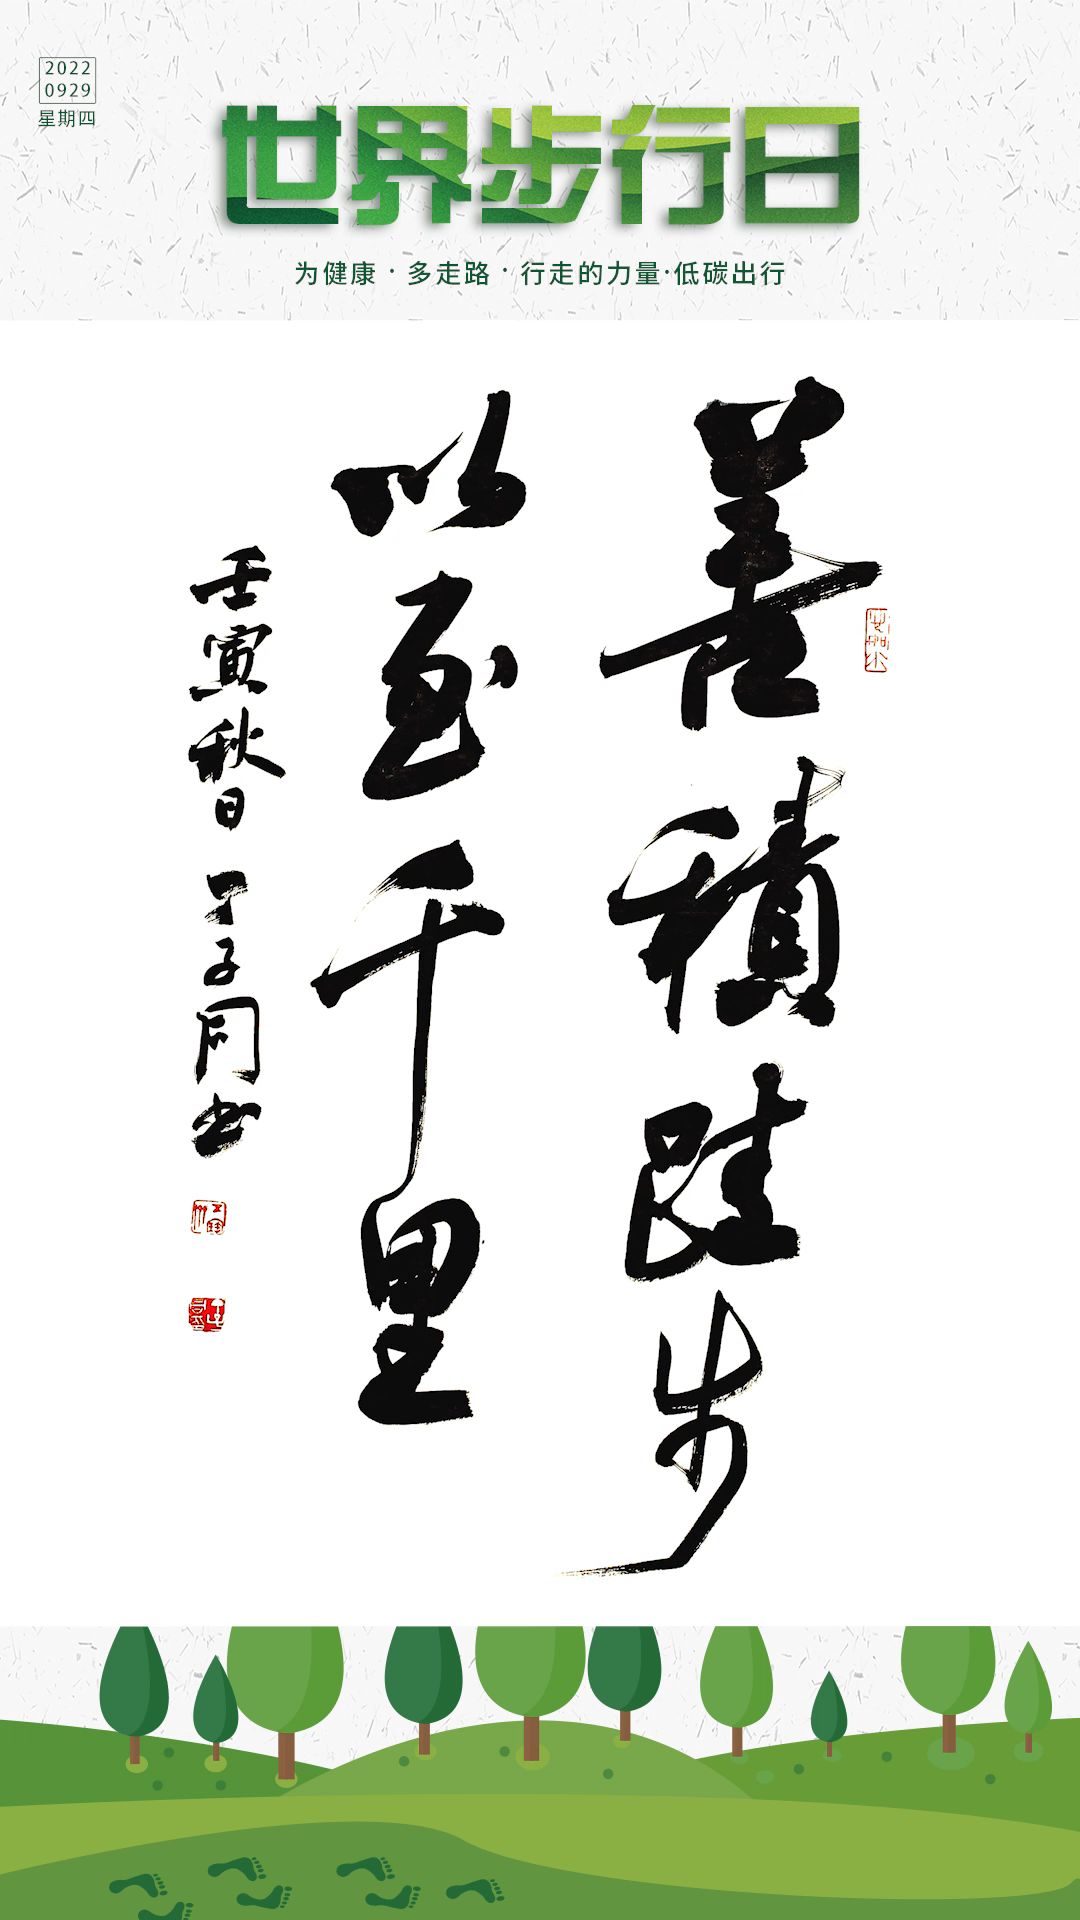 2022
0929
星期四
世界步行日
为健康·多走路·行走的力量·低碳出行
善積跬步
以至千里
壬寅秋日丁子同书